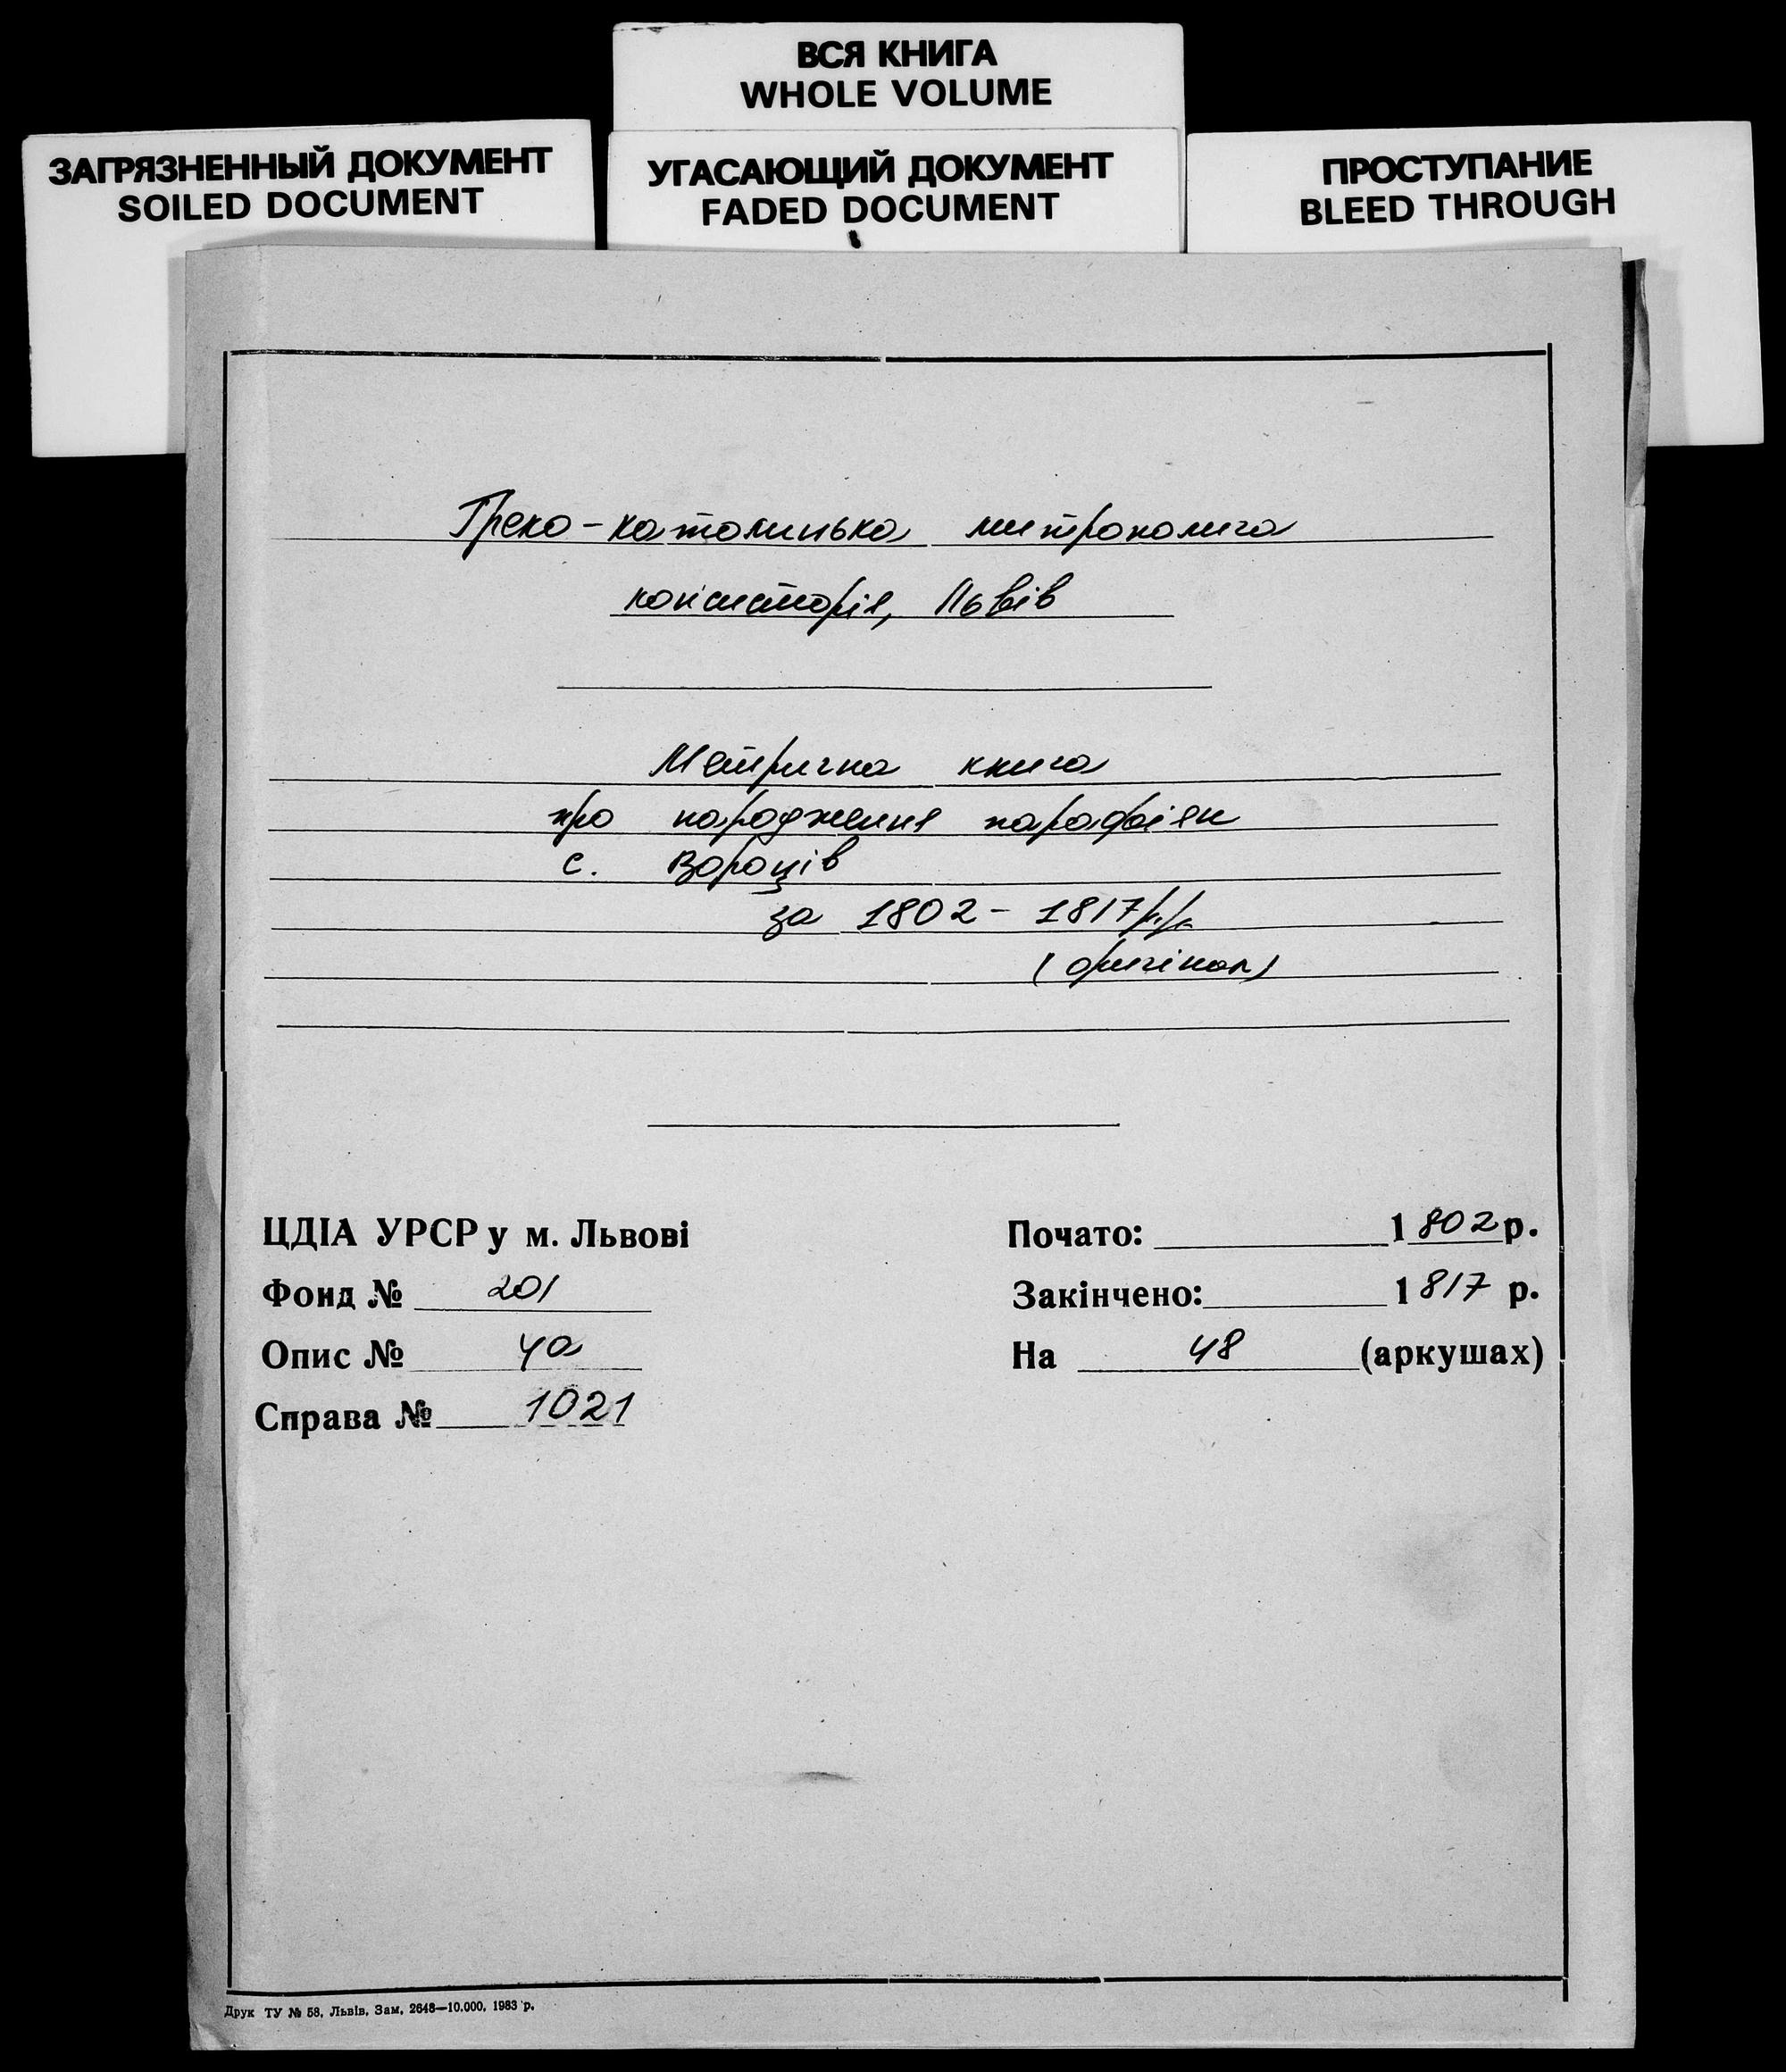 ВСЯ КНИГА
WHOLE VOLUME
ЗАГРЯЗНЕННЫЙ ДОКУМЕНТ
SOILED DOCUMENT
УГАСАЮЩИЙ ДОКУМЕНТ
FADED DOCUMENT
ПРОСТУПАНИЕ
BLEED THROUGH
Греко-католицька митрополича
консисторія, Львів
Метрична книга
про народження парафіян
с. Вороців
за 1802 - 1817 р.р.
(оригінал)
ЦДІА УРСР у м. Львові
Фонд № 201
Опис № 4а
Справа № 1021
Почато: 1802 р.
Закінчено: 1817 р.
На 48 (аркушах)
Друк ТУ № 58, Львів, Зам, 2648—10.000, 1983 р.